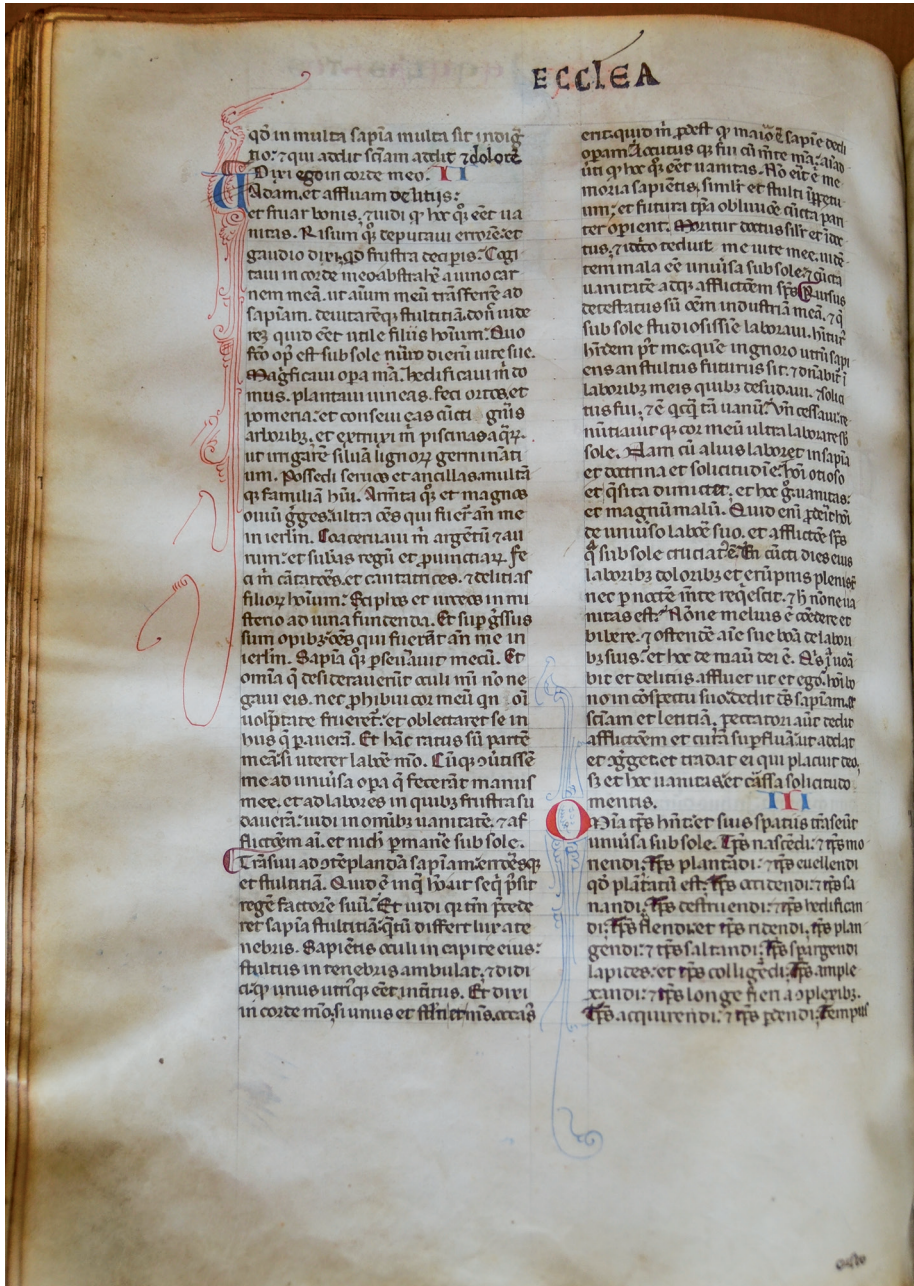 ECCLEA
qđ in multa sapīa multa sit indiḡ
tio: ⁊ qui addit sciam addit ⁊ dolorē
Dixi ego in corde meo. II
Uadam. et affluam delitiis:
et fruar bonis. ⁊ uidi qͥ hoc qͦꝫ eēt ua
nitas. Risum qͦꝫ deputaui errorē: et
gaudio dixi. qđ frustra deciperis: Cogi
taui in corde meo abstrahē a uino car
nem meā. ut aīum meū trāsferrē ad
sapīam. deuitarēqꝫ stultitiam. don̄ uide
reꝫ quid eēt utile filiis hōium: Quo
fc̄o op̄ est sub sole nūo dierū uite sue.
Magficaui opa mā. hedificaui m̄ do
mus. plantaui uineas. feci ortos. et
pomeria: et conseui eas cūcti gn̄is
arboribꝫ. et extruxi m̄ piscinas aq̄ꝝ.
ut irrigarē siluā lignoꝝ germināti
um. Possedi seruos et ancillas. multā
qꝫ familiā hūi. Armīta qͦꝫ et magnos
ouiū ḡges. ultra oēs qui fuer̄ an̄ me
in ierl̄m. Coaceruaui m̄ argētū ⁊ au
rum: et subās regū et ꝓuinciaꝝ. Fe
ci m̄ cātatōes. et cantatrices. ⁊ delitias
filioꝝ hōium: Sciphos et urceos in mi
sterio ad uina fundenda. Et supḡssus
sum opibꝫ oēs qui fuerāt an̄ me in
ierl̄m. Sapīa qͦꝫ ꝑseuauit mecū. Et
omīa q̄ desiderauerūt oculi mī nō ne
gaui eis. nec ꝓhibui cor meū qn̄ oī
uolp̄tate frueret̄: et oblectaret se in
hiis q̄ ꝑauerā. Et hāc ratus sū partē
meā. si uterer laboē mō. Cūqꝫ ꝯuertissē
me ad unīuisa opa q̄ fecerāt manus
mee. et ad labores in quibꝫ frustra su
dauerā: uidi in omībꝫ uanitatē. ⁊ af
flictōem aī. et nich̄ ꝑmanē sub sole.
Trāsiui ad ꝯtēplandā sapīam. erroēsqꝫ
et stultitiā. Quid ē inqͣ hō. ut seqͥ p̄sit
regē factorē suū. Et uidi qͥ tm̄ p̄cede
ret sapīa stultitiā: qͣtū differt lux a te
nebris. Sapiētis oculi in capite eius:
stultus in tenebris ambulat. ⁊ didi
ci. qͥ unus utriꝰqꝫ eēt intītus. Et dixi
in corde mō. si unus et stl̄ti ⁊ mīs. occas̄
erit. quid m̄ ꝓdest qͥ maiorē sapīe dedi
opam. Locutus qꝫ sui cū mīte mā. aīad
uti qͥ hoc qͦꝫ eēt uanitas. Nō eīt ē me
moria sapiētis. simil̄r et stulti ī ꝑpetu
um: et futura tp̄a obliuiōe cūcta pan
ter opient. Moritur doctus sil̄r et īdoc
tus. ⁊ idcirco teduit me uite mee. uidē
tem mala eē unīuisa sub sole. ⁊ cūcta
uanitatē adqꝫ afflictōem sp̄s. Rursus
detestatus sū oēm industriā meā. ⁊ q̄
sub sole studiosissīe laboraui. hītur
hr̄dem p̄t me. que ingnoro utrū sapi
ens an stultus futurus sit. ⁊ dn̄abit̄ ī
laboribꝫ meis quibꝫ desudaui. ⁊ solici
tus fui. ⁊ ē qͥcqͣ tā uanū. Vn̄ cessaui. re
nūtiauit qꝫ cor meū ultra laborare sb̄
sole. Nam cū alius laboret in sapīa
et doctrina et solicitudīe. hōi otioso
et qͥsita dimictet. et hoc ḡ. uanitas:
et magnū malū. Quid enī ꝓderit hōi
de unīuiso laboē suo. et afflictōe sp̄s
q̄ sub sole cruciat̄ ē. Cn̄cti dies eius
laboribꝫ doloribꝫ et erūpnis pleni sūt
nec ꝑ noctē mīte reqͥescit. ⁊ h̄ nōne ua
nitas est. Nōne melius ē cōedere et
bibere. ⁊ ostendē aīe sue bōa de labori
bꝫ suis. et hoc de manū dei ē. Qͥs ī uoā
bit et delitiis affluet ut ego. hōi bo
no in cōspectu suo dedit ds̄ sapīam. ⁊
sciam et letitiā. peccatori aūt dedit
afflictōem et curā supfluā. ut addat
et ꝯgget. et tradat ei qui placuit deo.
sꝫ et hoc uanitas. et cāssa solicitudo
mentis. III
Omīa tp̄s hn̄t. et suis spatiis trāseūt
unīuisa sub sole. Tp̄s nascēdi: ⁊ tp̄s mo
riendi. Tp̄s plantādi: ⁊ tp̄s euellendi
qđ plātatū est. Tp̄s occidendi: ⁊ tp̄s sa
nandi. Tp̄s destruendi: ⁊ tp̄s hedifican
di. Tp̄s flendi: et tp̄s ridendi. Tp̄s plan
gendi: ⁊ tp̄s saltandi. Tp̄s spargendi
lapides: et tp̄s colligēdi. Tp̄s ample
xandi: ⁊ tp̄s longe fieri a ꝯplexibꝫ.
Tp̄s. acquirendi: ⁊ tp̄s ꝑdendi. Tempus